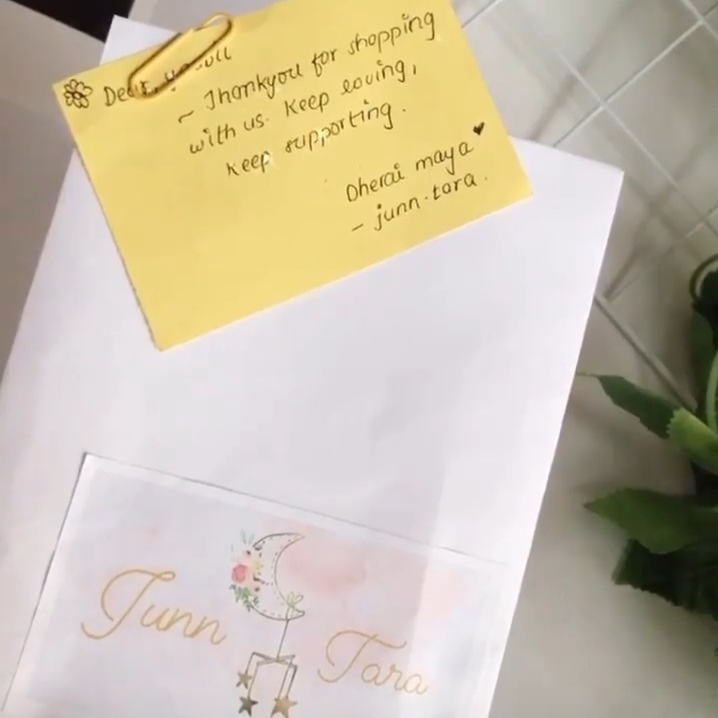 Dear,
~ Thankyou for shopping
with us. Keep loving,
keep supporting.
Dherai maya
- junn.tara.
Junn Tara